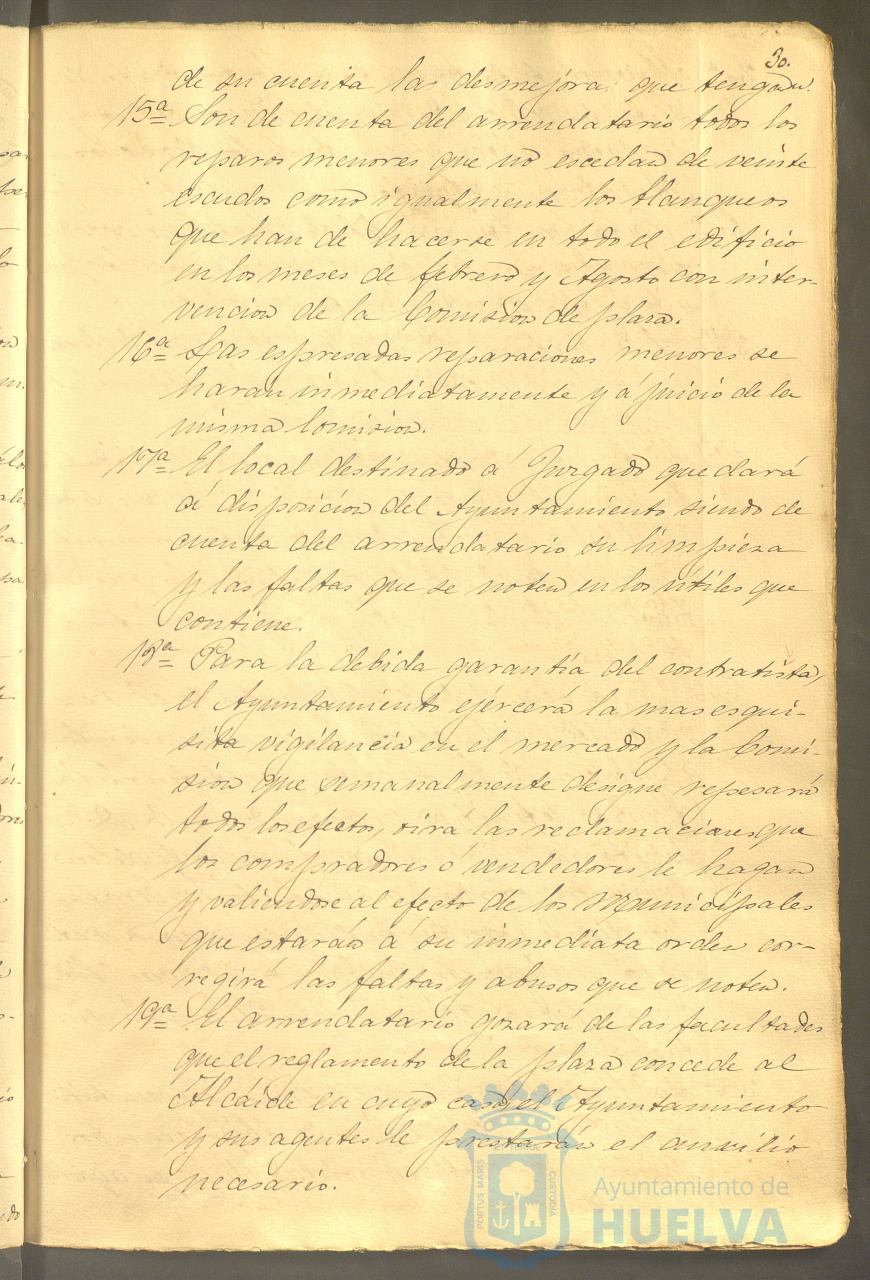 30.
de su cuenta las desmejora que tengan.
15ª Son de cuenta del arrendatario todos los
reparos menores que no escedan de veinte
escudos como igualmente los blanqueos
que han de hacerse en todo el edificio
en los meses de febrero y Agosto con inter-
vencion de la Comision de plaza.
16ª Las espresadas reparaciones menores se
haran inmediatamente y á juicio de la
misma Comision.
17ª El local destinado á Juzgado quedará
á disposicion del Ayuntamiento siendo de
cuenta del arrendatario su limpieza
y las faltas que se noten en los útiles que
contiene.
18ª Para la debida garantía del contratista,
el Ayuntamiento ejercerá la mas esqui-
sita vigilancia en el mercado y la Comi-
sion que semanalmente designe repesará
todos los efectos, oirá las reclamaciones que
los compradores ó vendedores le hagan
y valiendose al efecto de los Municipales
que estarán á su inmediata orden cor-
regirá las faltas y abusos que se noten.
19ª El arrendatario gozará de las facultades
que el reglamento de la plaza concede al
Alcáide en cuyo caso el Ayuntamiento
y sus agentes le prestarán el auxilio
necesario.
PORTUS MARIS
ET TERRAE
CUSTODIA
Ayuntamiento de
HUELVA